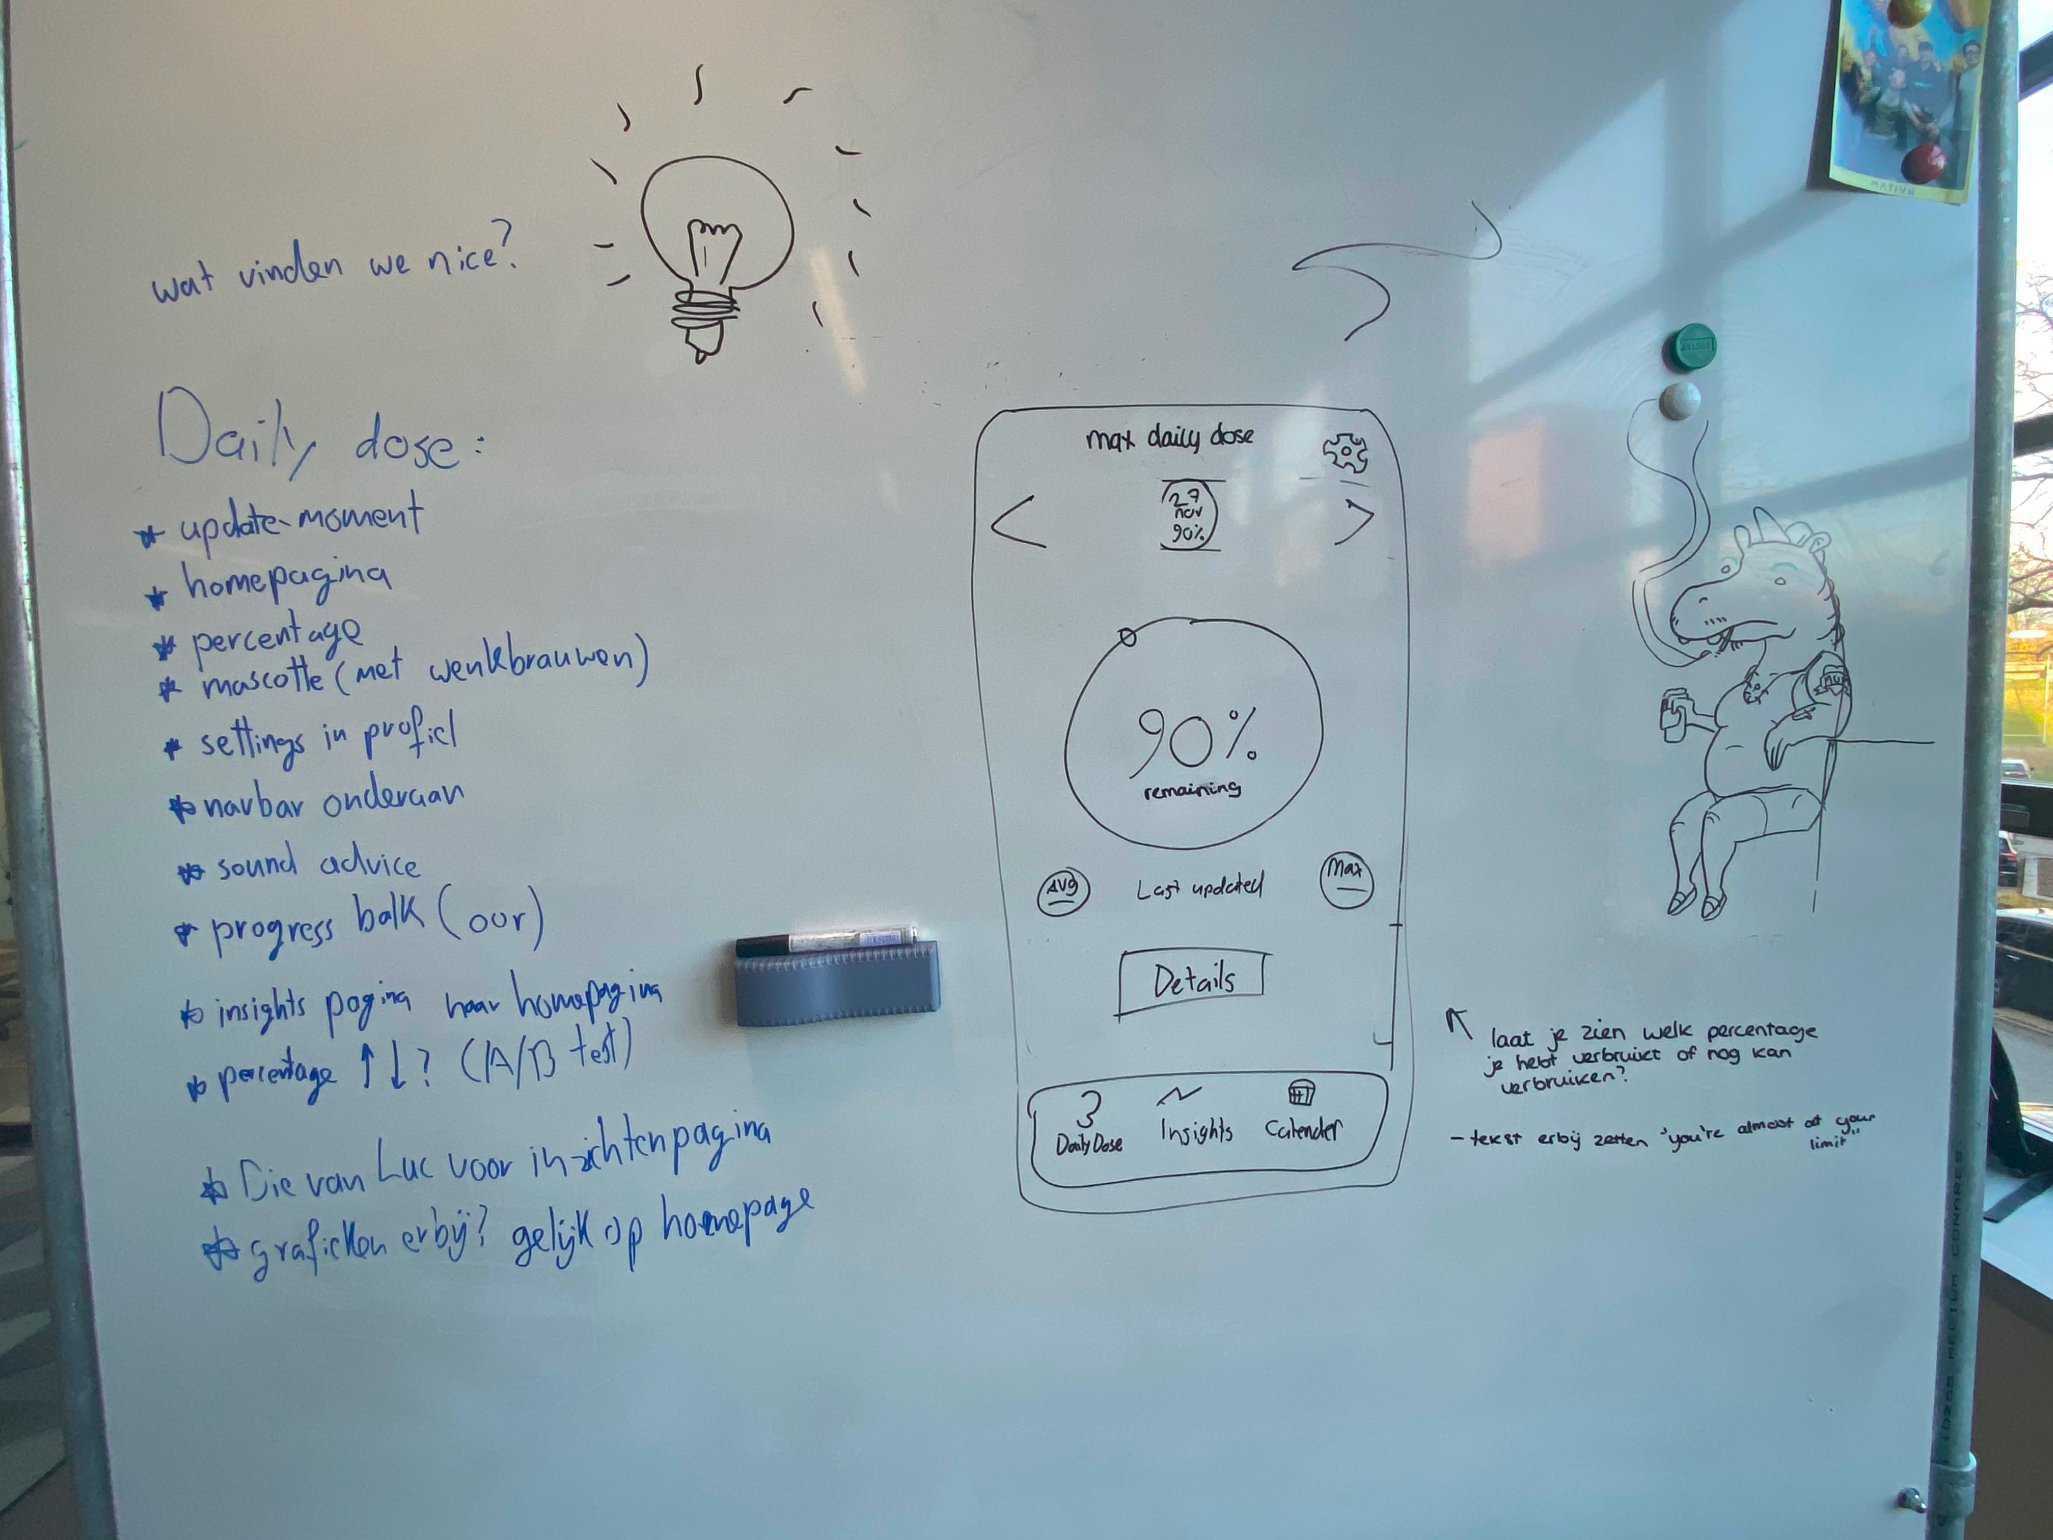 wat vinden we nice?
Daily dose:
* update-moment
* homepagina
* percentage
* mascotte (met wenkbrauwen)
* settings in profiel
* navbar onderaan
* sound advice
* progress balk (oor)
* insights pagina naar homepagina
* percentage ↑↓? (A/B test)
* Die van Luc voor inzichtenpagina
* grafieken erbij? gelijk op homepage
max daily dose
<
27
nov
90%
>
90%
remaining
AVG
Last updated
Max
Details
Daily Dose
Insights
Calender
laat je zien welk percentage
je hebt verbruikt of nog kan
verbruiken?
- tekst erbij zetten "you're almost at your
limit"